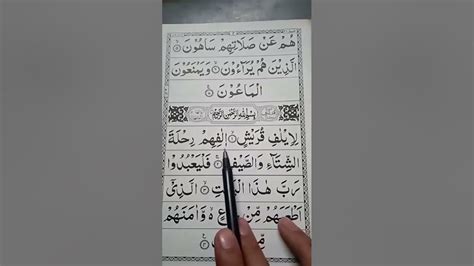 هُمْ عَنْ صَلَاتِهِمْ سَاهُوْنَ ۙ
الَّذِيْنَ هُمْ يُرَآءُوْنَ ۙ وَيَمْنَعُوْنَ
الْمَاعُوْنَ
بِسْمِ اللّٰهِ الرَّحْمٰنِ الرَّحِيْمِ
لِاِيْلٰفِ قُرَيْشٍ ۙ اٖلٰفِهِمْ رِحْلَةَ
الشِّتَآءِ وَالصَّيْفِ ۚ فَلْيَعْبُدُوْا
رَبَّ هٰذَا الَّذِيْٓ
اَطْعَمَهُمْ مِّنْ وَّاٰمَنَهُمْ